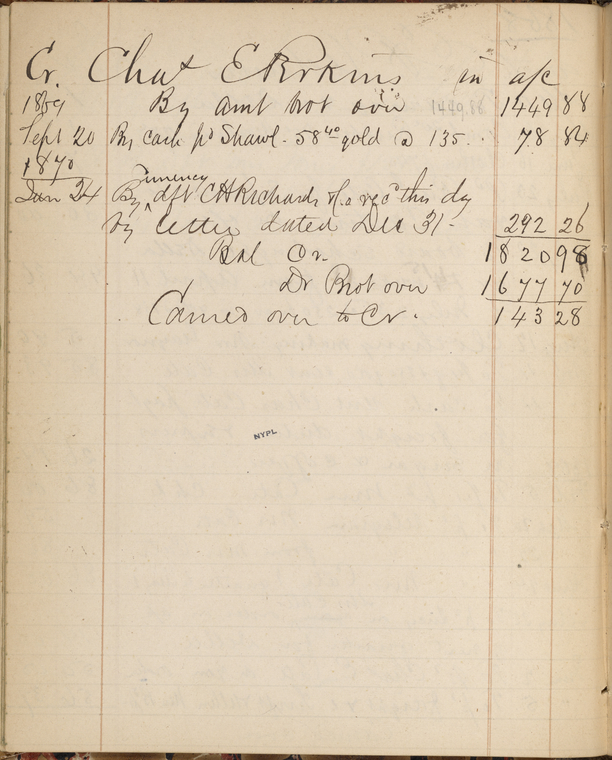 Cr. Chas E Perkins in a/c
1869 By amt brot over 1449.88 1449 88
Sept 20 By cash pd Shawl - 58 40 gold @ 135. 78 84
1870
Jan 24 By currency dft C H Richards rec'd this day
by letter dated Dec 31 - 292 26
Bal Cr. 1820 98
Dr Brot over 1677 70
Carried over to Cr. 143 28
NYPL